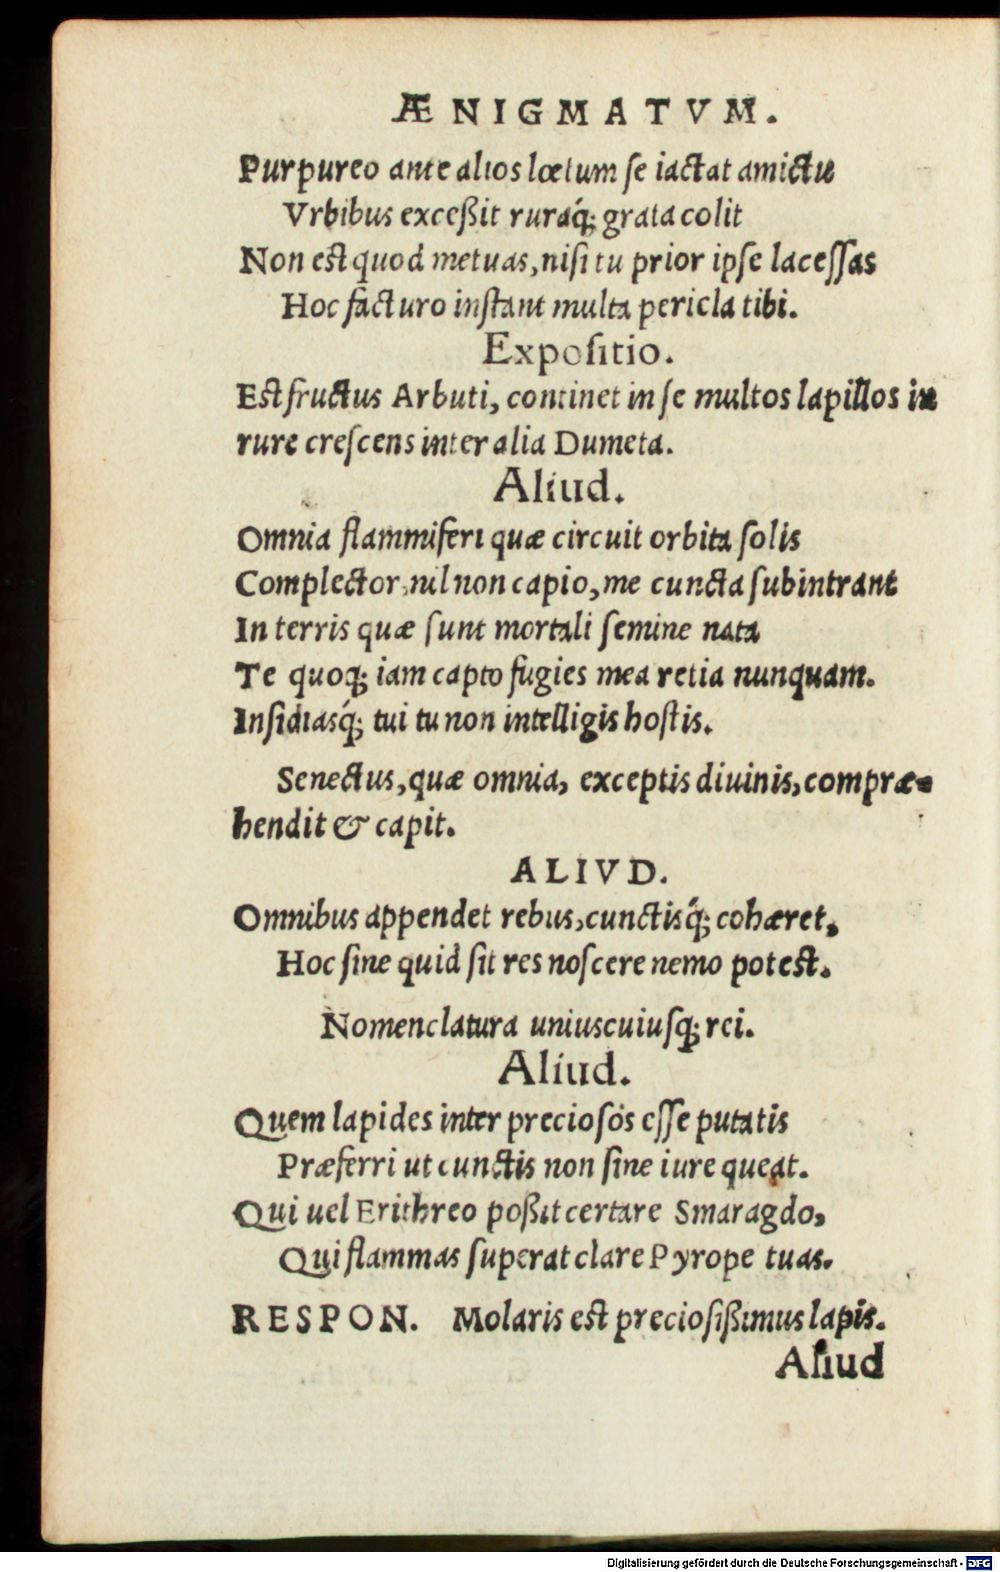 ÆNIGMATVM.
Purpureo ante alios lœtum ſe iactat amictu
Vrbibus exceßit ruraq́; grata colit
Non est quod metuas, niſi tu prior ipſe laceſſas
Hoc facturo inſtant multa pericla tibi.
Expoſitio.
Est fructus Arbuti, continet in ſe multos lapillos in
rure creſcens inter alia Dumeta.
Aliud.
Omnia flammiferi quæ circuit orbita ſolis
Complector, nil non capio, me cuncta ſubintrant
In terris quæ ſunt mortali ſemine nata
Te quoq; iam capto fugies mea retia nunquam.
Inſidiasq́; tui tu non intelligis hoſtis.
Senectus, quæ omnia, exceptis diuinis, compræ-
hendit & capit.
ALIVD.
Omnibus appendet rebus, cunctisq́; cohæret,
Hoc ſine quid ſit res noſcere nemo potest.
Nomenclatura uniuscuiuſq; rei.
Aliud.
Quem lapides inter precioſos eſſe putatis
Præferri ut cunctis non ſine iure queat.
Qui uel Erithreo poßit certare Smaragdo,
Qui flammas ſuperat clare Pyrope tuas.
RESPON. Molaris est precioſißimus lapis.
Aliud
Digitalisierung gefördert durch die Deutsche Forschungsgemeinschaft - DFG